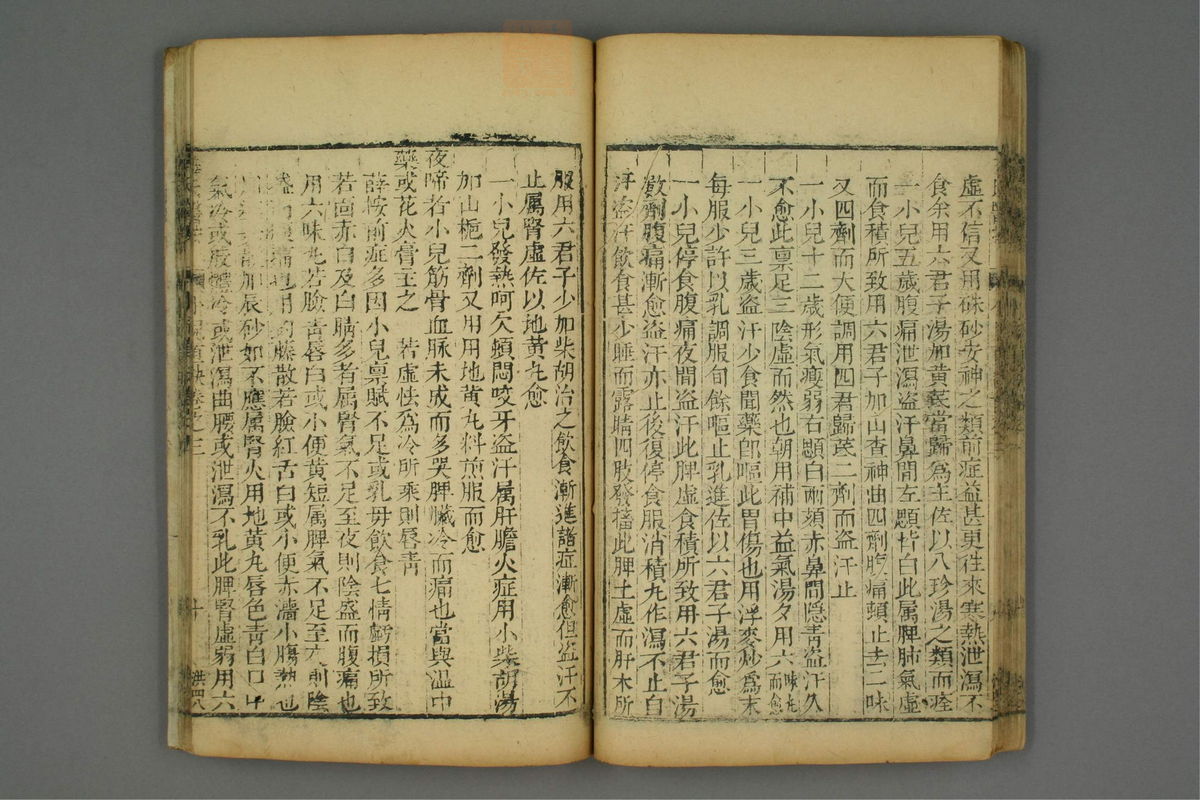 虛不信又用硃砂安神之類前症益甚更徃來寒熱泄瀉不
食余用六君子湯加黃芪當歸為主佐以八珍湯之類而痊
一小兒五歲腹痛泄瀉盗汗鼻間左顋皆白此属脾肺氣虛
而食積所致用六君子加山查神曲四劑腹痛頓止去二味
又四劑而大便調用四君歸芪二劑而盗汗止
一小兒十二歲形氣瘦弱右顋白兩頰赤鼻間隱青盗汗久
不愈此禀足三陰虛而然也朝用補中益氣湯夕用六味丸而愈
一小兒三歲盗汗少食聞藥卽嘔此胃傷也用浮麥炒為末
每服少許以乳調服旬餘嘔止乳進佐以六君子湯而愈
一小兒停食腹痛夜間盗汗此脾虛食積所致用六君子湯
數劑腹痛漸愈盗汗亦止後復停食服消積丸作瀉不止自
汗盗汗飲食甚少睡而露睛四肢發搐此脾土虛而肝木所
服用六君子少加柴胡治之飲食漸進諸症漸愈但盗汗不
止属腎虛佐以地黃丸愈
一小兒發熱呵欠頓悶咬牙盗汗属肝膽火症用小柴胡湯
加山梔二劑又用用地黃丸料煎服而愈
夜啼若小兒筋骨血脉未成而多哭脾臟冷而痛也當與溫中
藥或花火膏主之 若虛怯為冷所乘則唇青
薛桉前症多因小兒禀賦不足或乳母飲食七情虧損所致
若面赤白及白睛多者属腎氣不足至夜則陰盛而腹痛也
用六味丸若臉青唇白或小便黃短属脾氣不足至 則陰
也用 藤散若臉紅舌白或小便赤濇小腸熱也
加辰砂如不應属腎火用地黃丸唇色青白口中
氣冷或肢體冷或泄瀉曲腰或泄瀉不乳此脾腎虛弱用六
卷之三
十
洪四八